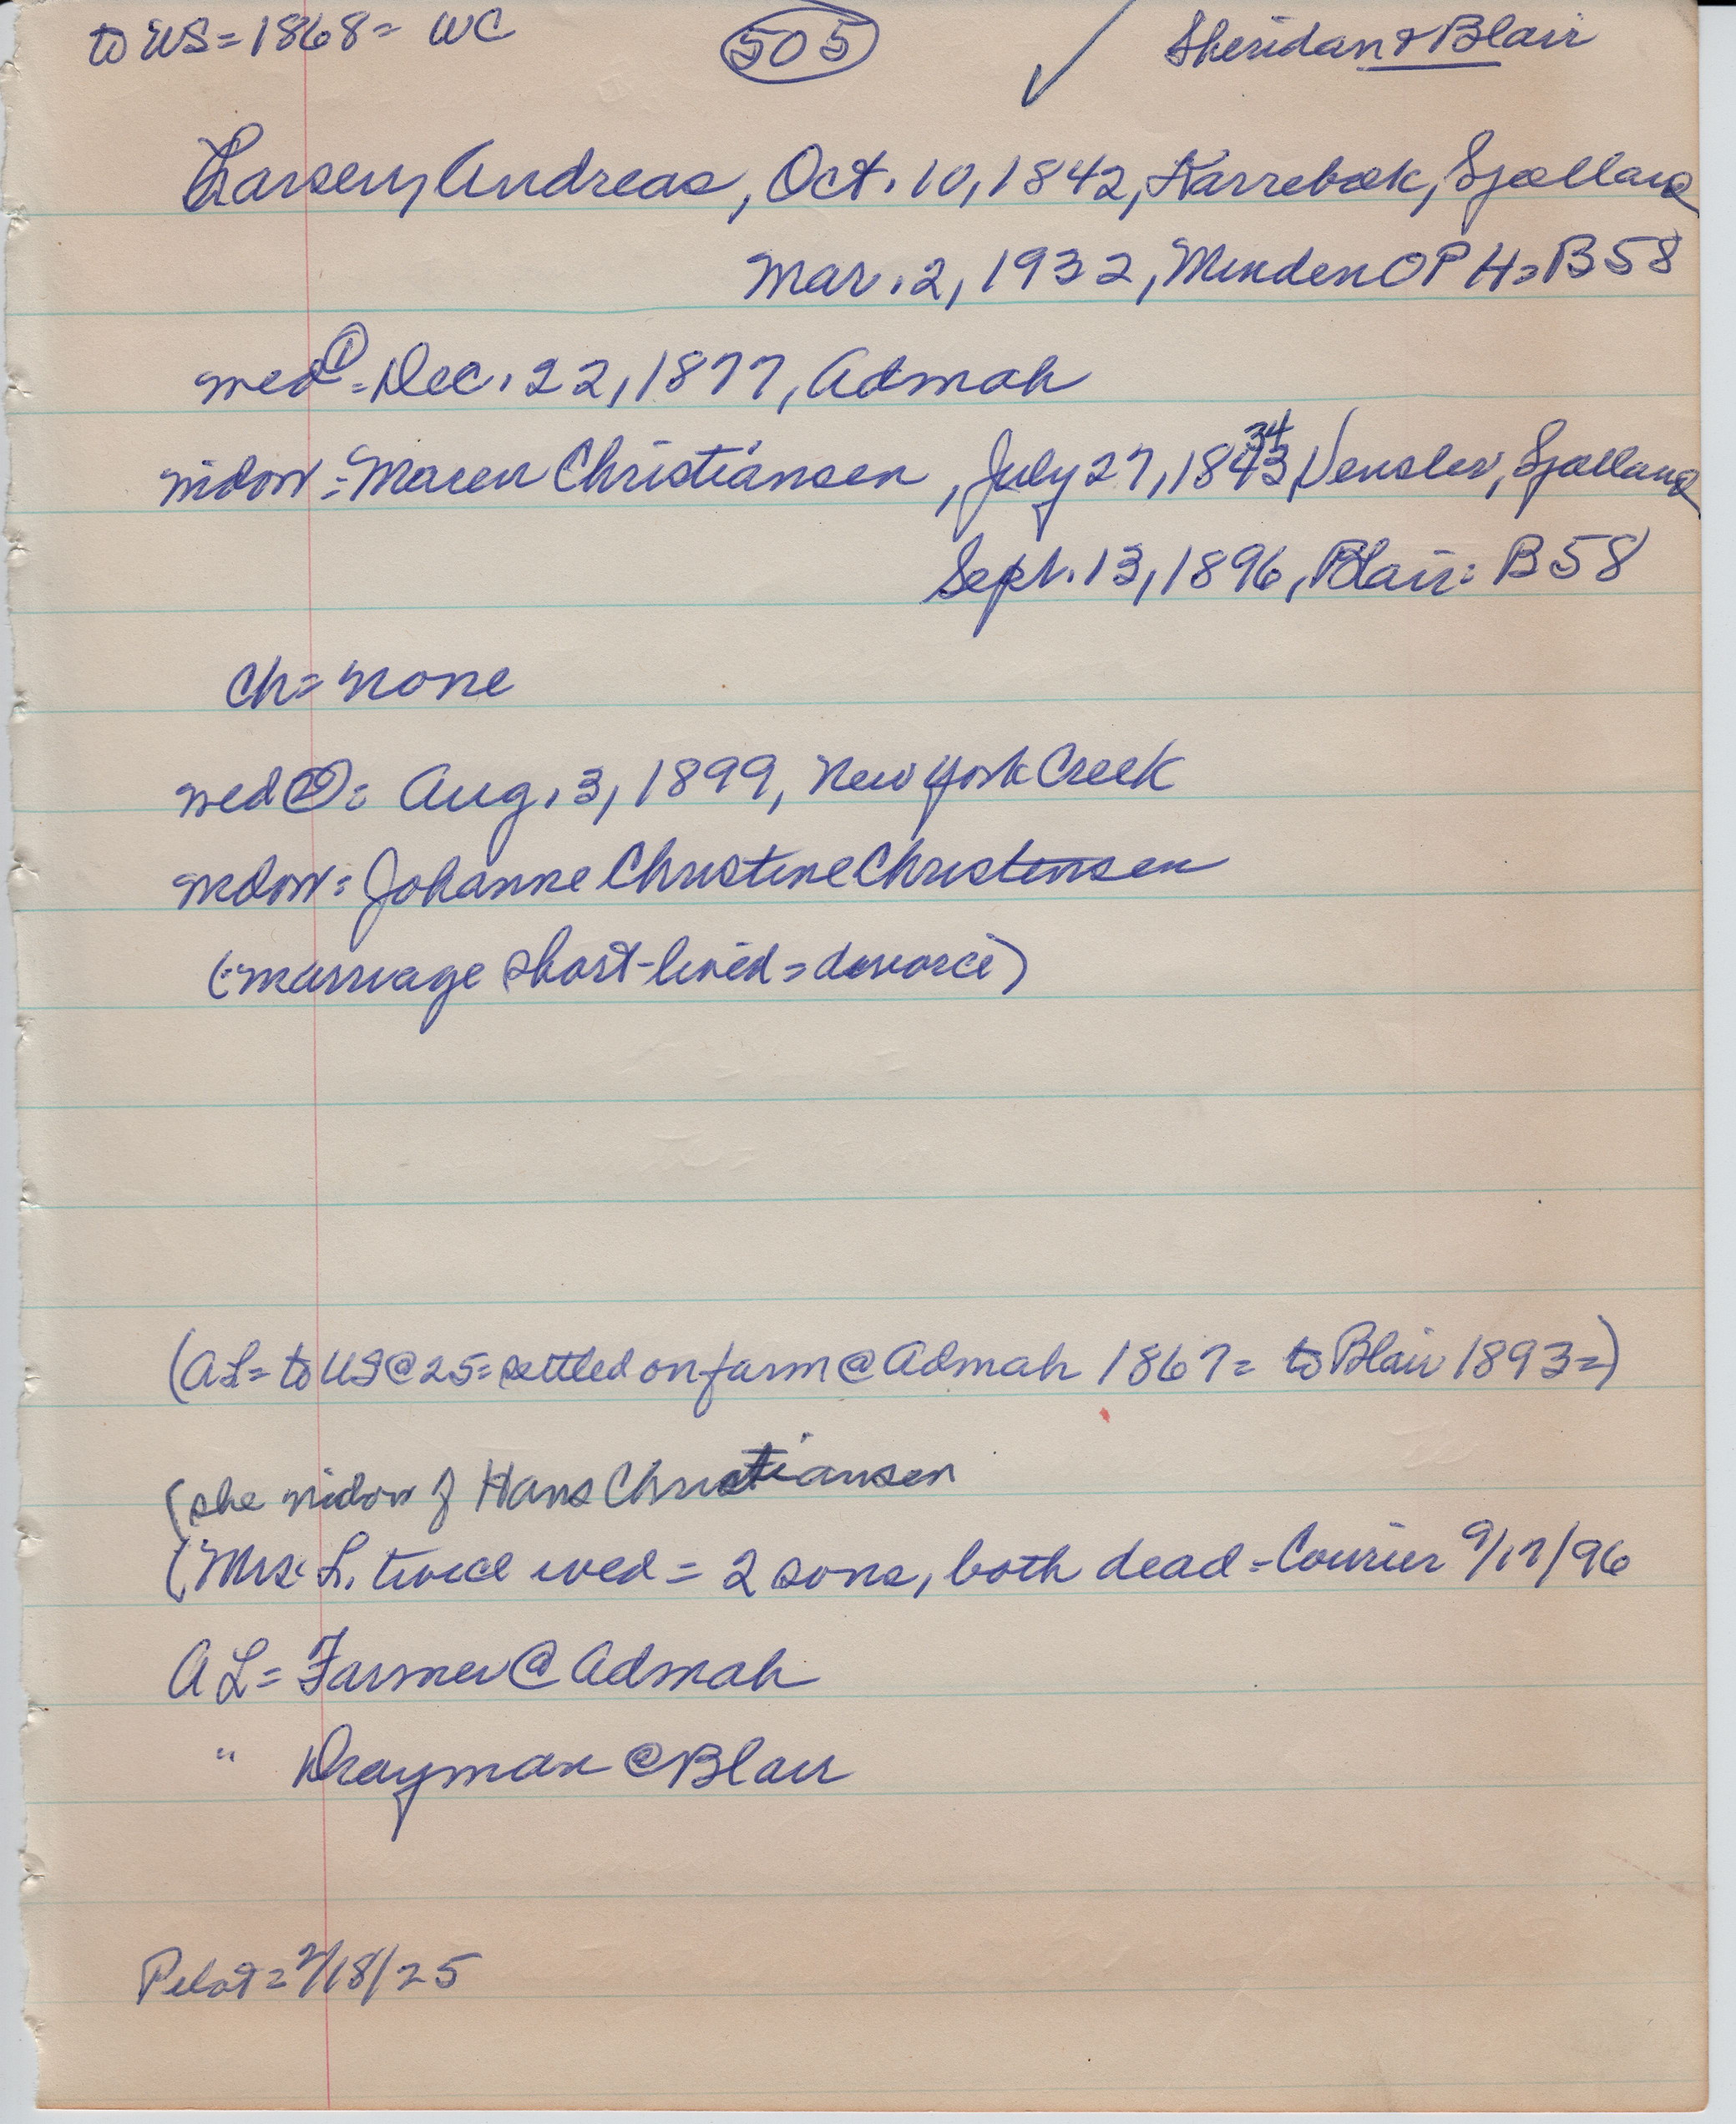 to US = 1868 = WC
505
Sheridan & Blair
Larsen, Andreas, Oct. 10, 1842, Karrebæk, Sjælland
Mar. 2, 1932, Minden OPH = B58
wed ① = Dec. 22, 1877, Admah
widow = Maren Christiansen, July 27, 1843 34 Venslev, Sjælland
Sept. 13, 1896, Blair = B58
ch = none
wed ② = Aug. 3, 1899, New York Creek
widow = Johanne Christine Christensen
(= marriage short-lived = divorce)
(AL = to US @ 25 = settled on farm @ Admah 1867 = to Blair 1893 =)
(she widow of Hans Christiansen
(Mrs. L. twice wed = 2 sons, both dead = Courier 9/17/96
AL = Farmer @ Admah
" Drayman @ Blair
Pilot = /18/25